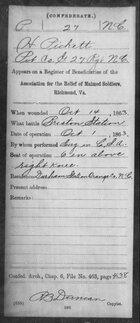 (CONFEDERATE.)
P 27 N.C.
H. Pickett
Pvt, Co. G, 27 Reg. N.C.
Appears on a Register of Beneficiaries of the
Association for the Relief of Maimed Soldiers,
Richmond, Va.
When wounded Oct 14, 1863.
What battle Bristoe Station
Date of operation Oct 1, 1863.
By whom performed Surg in C.S.A.
Seat of operation 6 in above
right knee.
Durham Station Orange Co. N.C.
Remarks:
Confed. Arch., Chap. 6, File No. 463, page 438
Copyist.